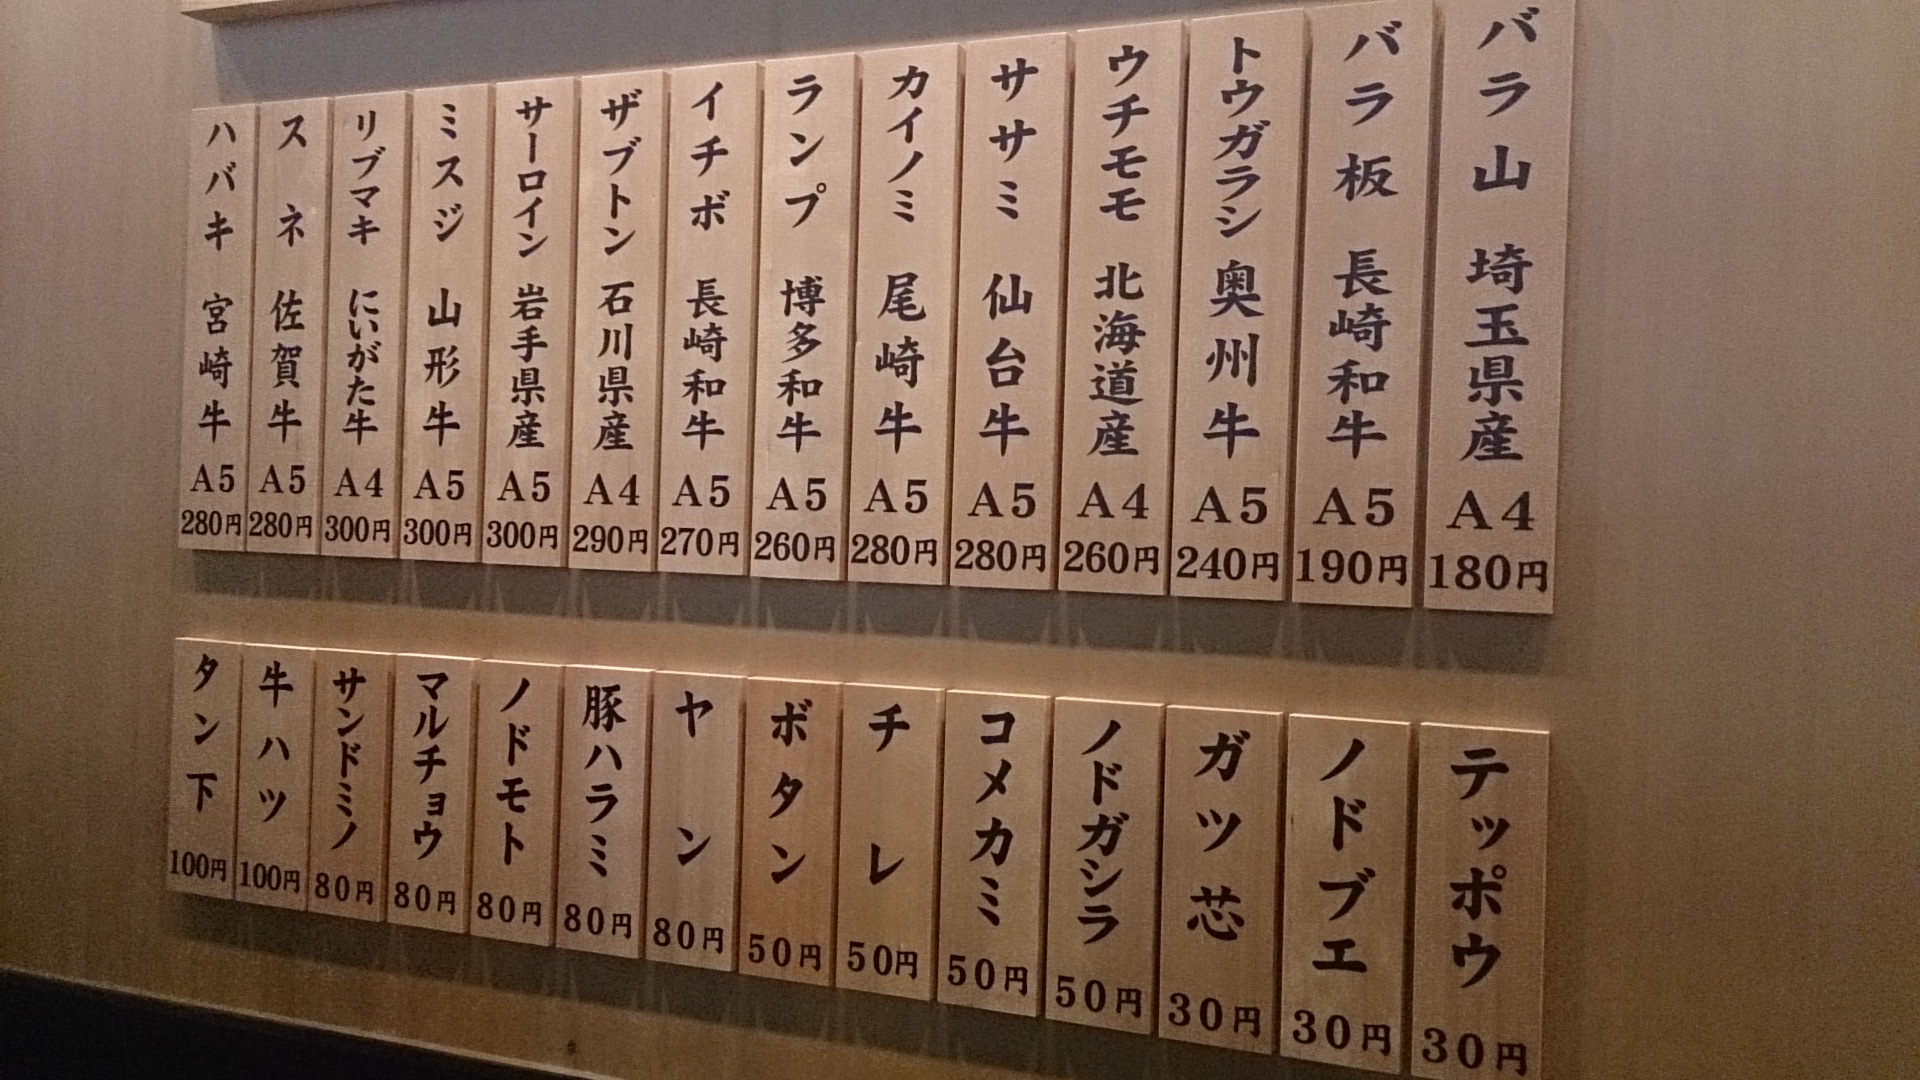 バラ山 埼玉県産 A4 180円
バラ板 長崎和牛 A5 190円
トウガラシ 奥州牛 A5 240円
ウチモモ 北海道産 A4 260円
ササミ 仙台牛 A5 280円
カイノミ 尾崎牛 A5 280円
ランプ 博多和牛 A5 260円
イチボ 長崎和牛 A5 270円
ザブトン 石川県産 A4 290円
サーロイン 岩手県産 A5 300円
ミスジ 山形牛 A5 300円
リブマキ にいがた牛 A4 300円
スネ 佐賀牛 A5 280円
ハバキ 宮崎牛 A5 280円
テッポウ 30円
ノドブエ 30円
ガツ芯 30円
ノドガシラ 50円
コメカミ 50円
チレ 50円
ボタン 50円
ヤン 80円
豚ハラミ 80円
ノドモト 80円
マルチョウ 80円
サンドミノ 80円
牛ハツ 100円
タン下 100円